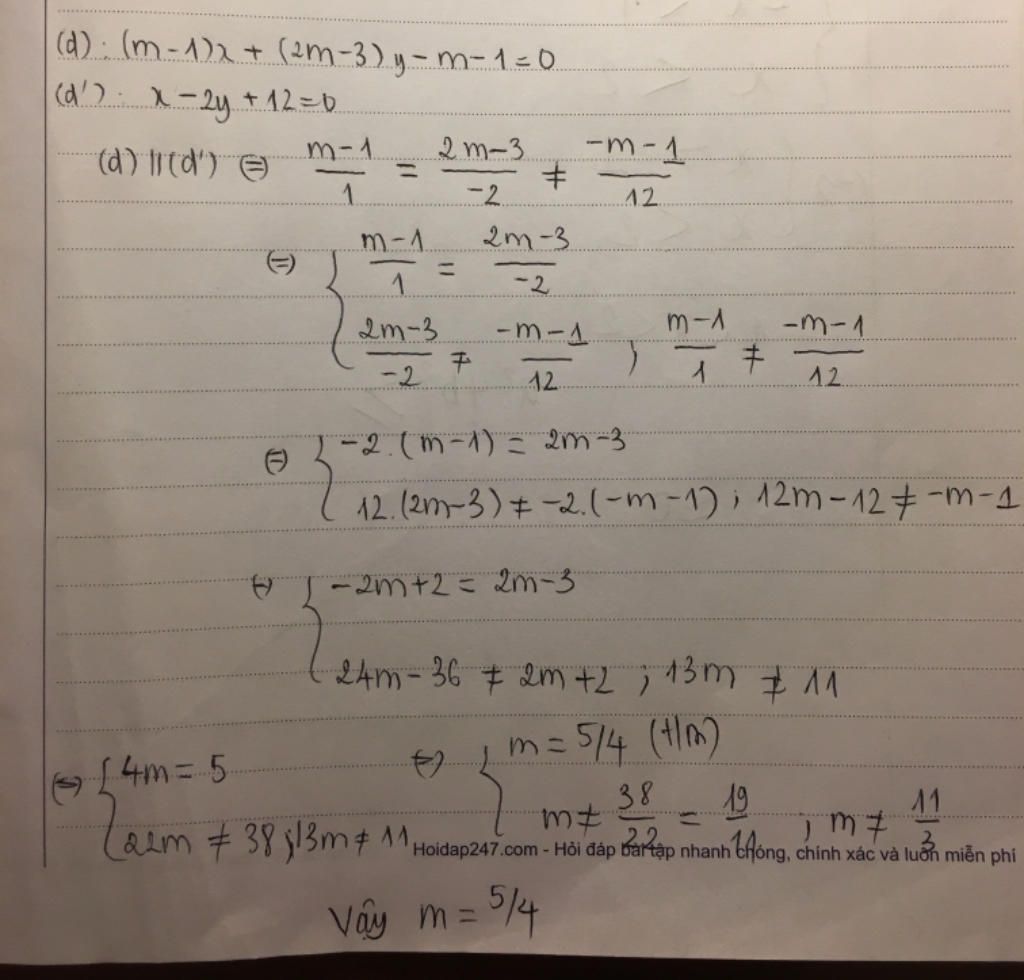 (d): (m-1)x + (2m-3)y - m - 1 = 0
(d'). x - 2y + 12 = 0
(d) || (d') (=) m-1/1 = 2m-3/-2 ≠ -m-1/12
(=) { m-1/1 = 2m-3/-2
2m-3/-2 ≠ -m-1/12 ; m-1/1 ≠ -m-1/12
(=) { -2.(m-1) = 2m-3
12.(2m-3) ≠ -2.(-m-1) ; 12m-12 ≠ -m-1
(=) { -2m+2 = 2m-3
24m-36 ≠ 2m+2 ; 13m ≠ 11
(=) { 4m = 5 (=) { m = 5/4 (t/m)
22m ≠ 38 ; 13m ≠ 11 m ≠ 38/22 = 19/11 ; m ≠ 11/3
Hoidap247.com - Hỏi đáp bài tập nhanh chóng, chính xác và luôn miễn phí
Vậy m = 5/4